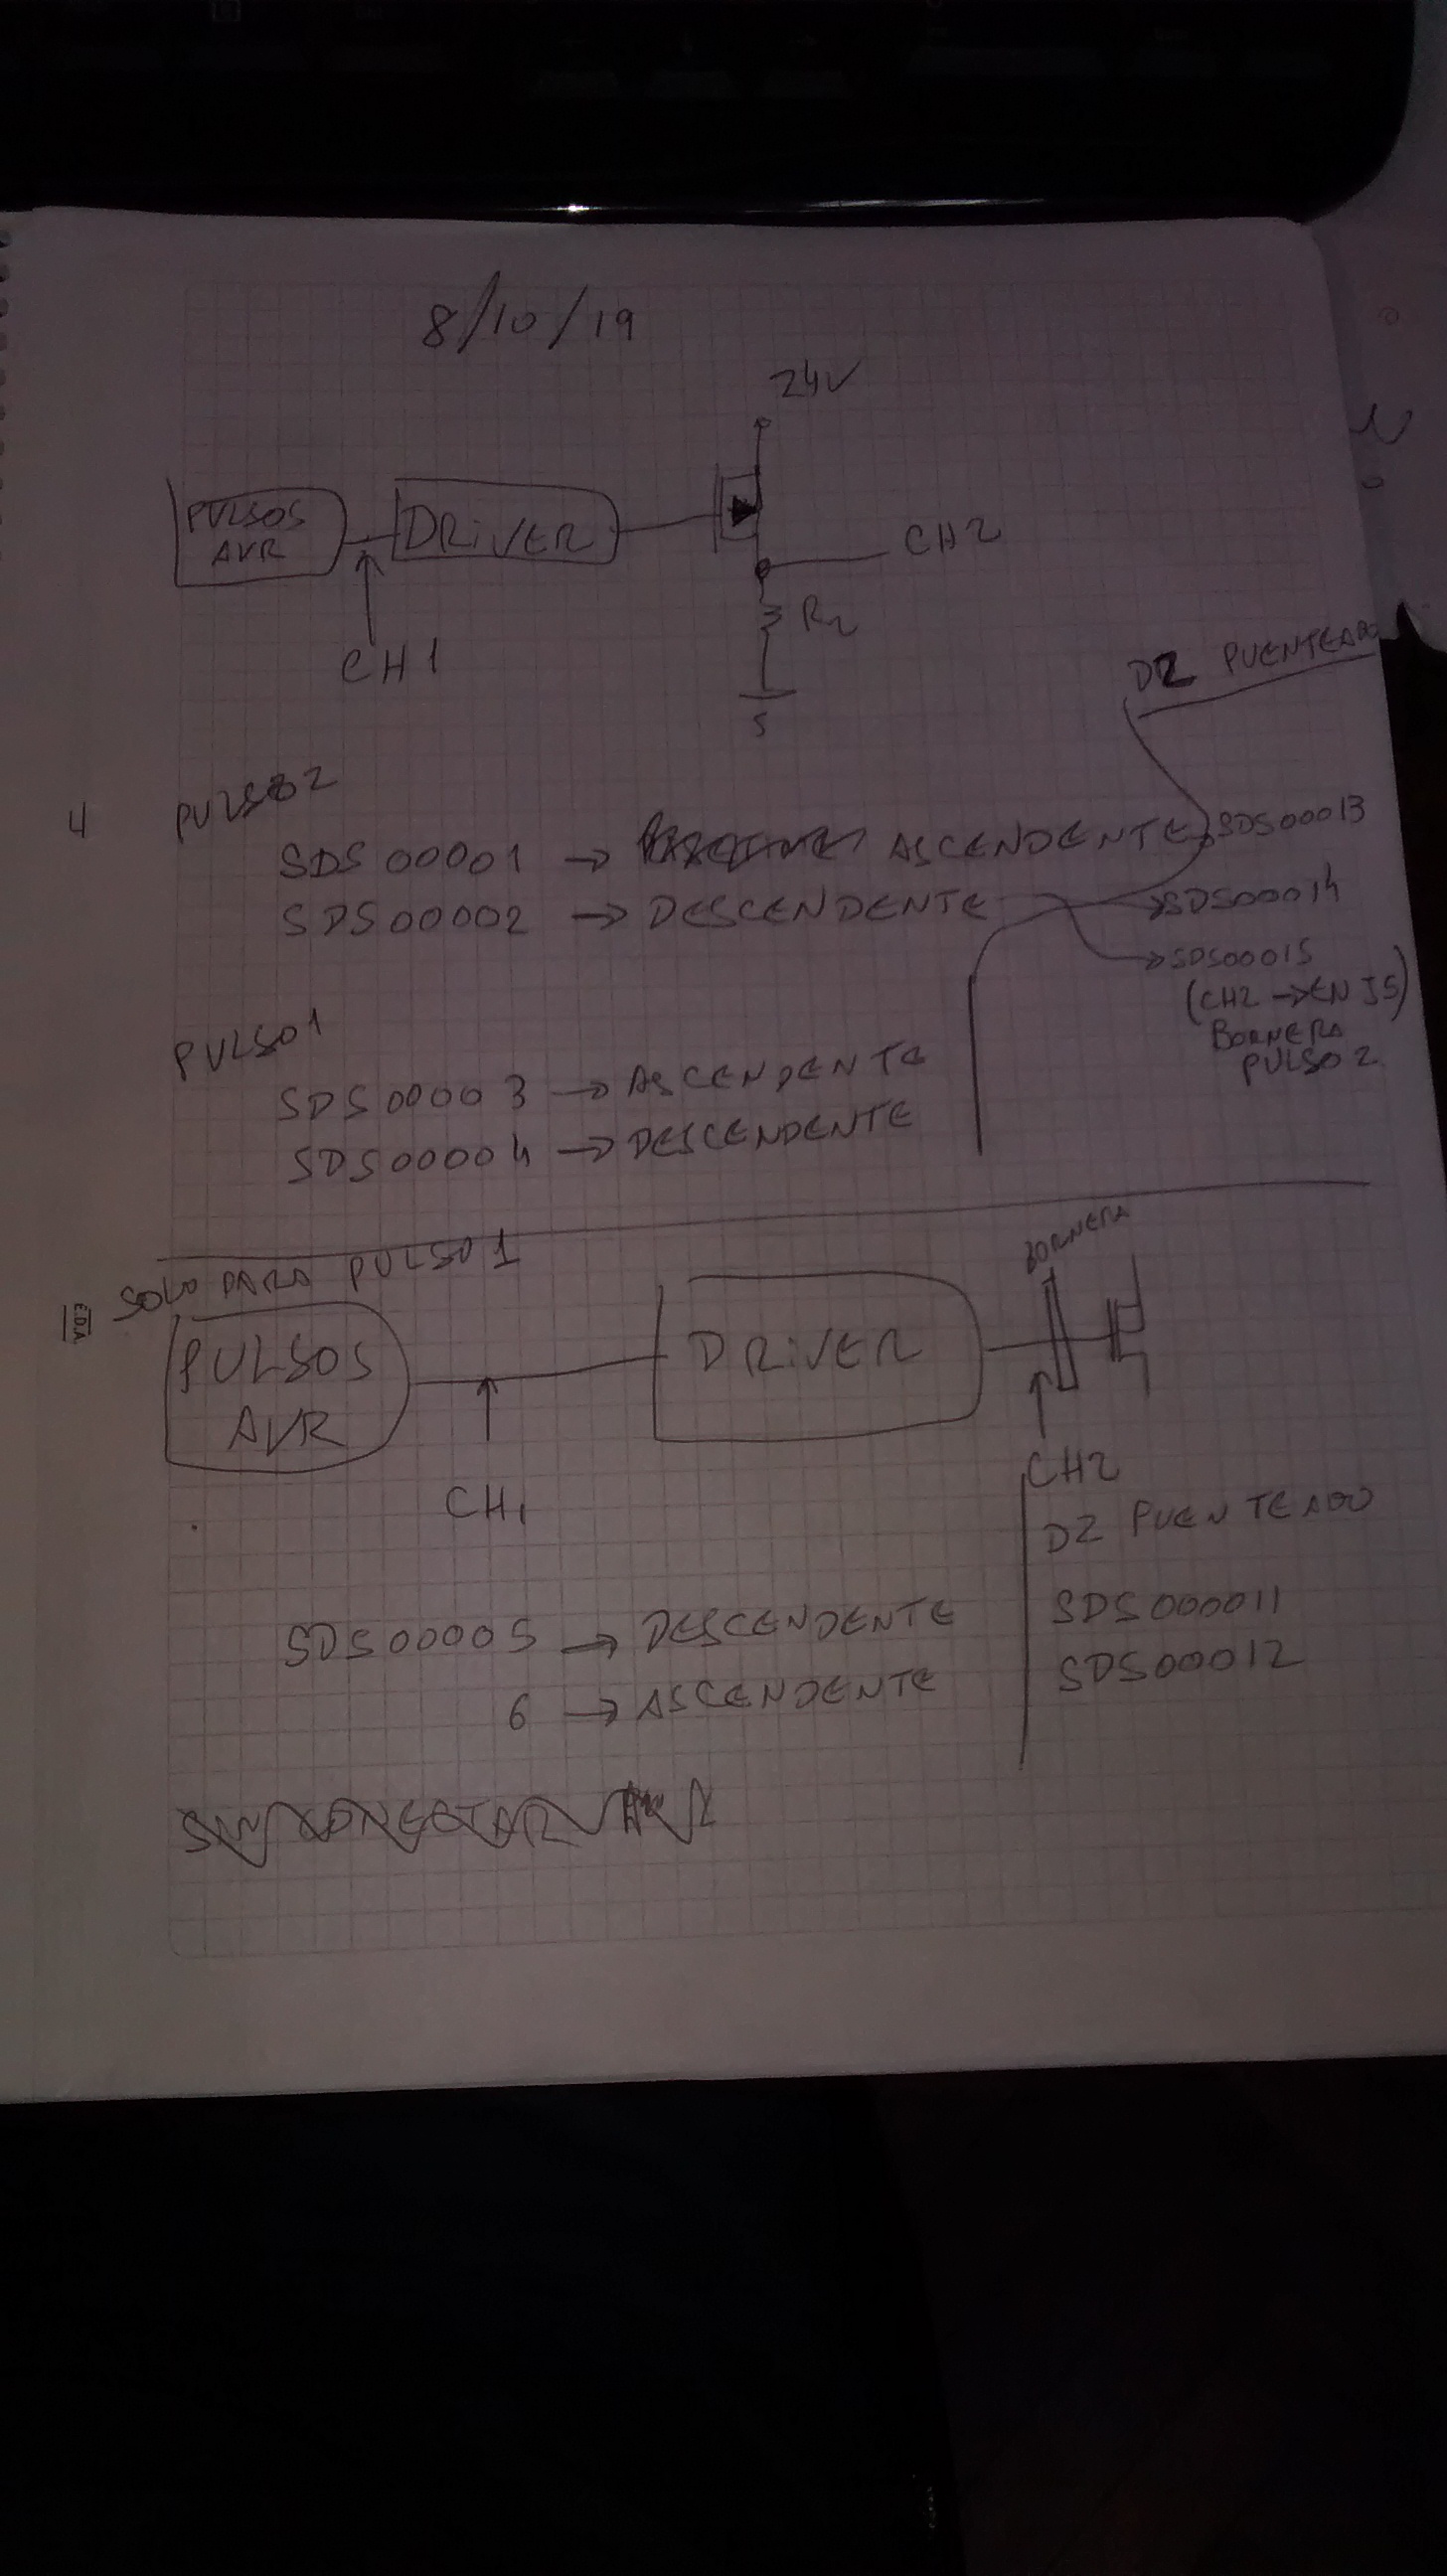 8/10/19
24V
PULSOS
AVR
DRIVER
CH2
CH1
R2
D2 PUENTEADO
4
PULSO2
SDS00001 → ASCENDENTE SDS00013
SDS00002 → DESCENDENTE SDS00014
SDS00015
(CH2 → EN J5)
BORNERA
PULSO 2
PULSO1
SDS00003 → ASCENDENTE
SDS00004 → DESCENDENTE
SOLO PARA PULSO1
BORNERA
PULSOS
AVR
DRIVER
CH1
CH2
D2 PUENTEADO
SDS00005 → DESCENDENTE
6 → ASCENDENTE
SDS000011
SDS00012